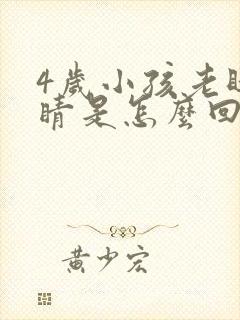 4歲小孩老
睛是怎麼回
黃少宏